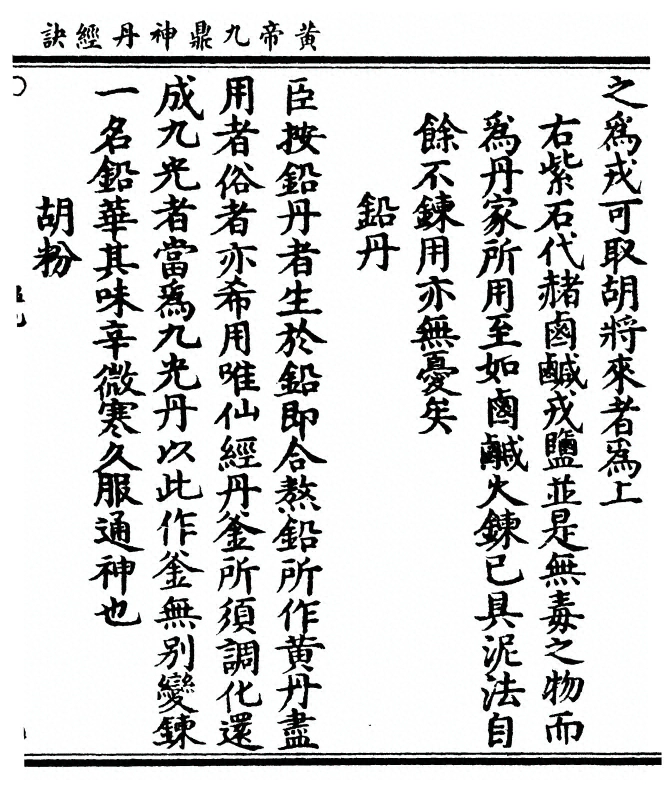 黃帝九鼎神丹經訣
之爲戎可取胡將來者爲上
右紫石代赭鹵鹹戎鹽並是無毒之物而
爲丹家所用至如鹵鹹火鍊已具泥法自
餘不鍊用亦無憂矣
鉛丹
臣按鉛丹者生於鉛即合熬鉛所作黃丹盡
用者俗者亦希用唯仙經丹釜所須調化還
成九光者當爲九光丹以此作釜無別變鍊
一名鉛華其味辛微寒久服通神也
胡粉